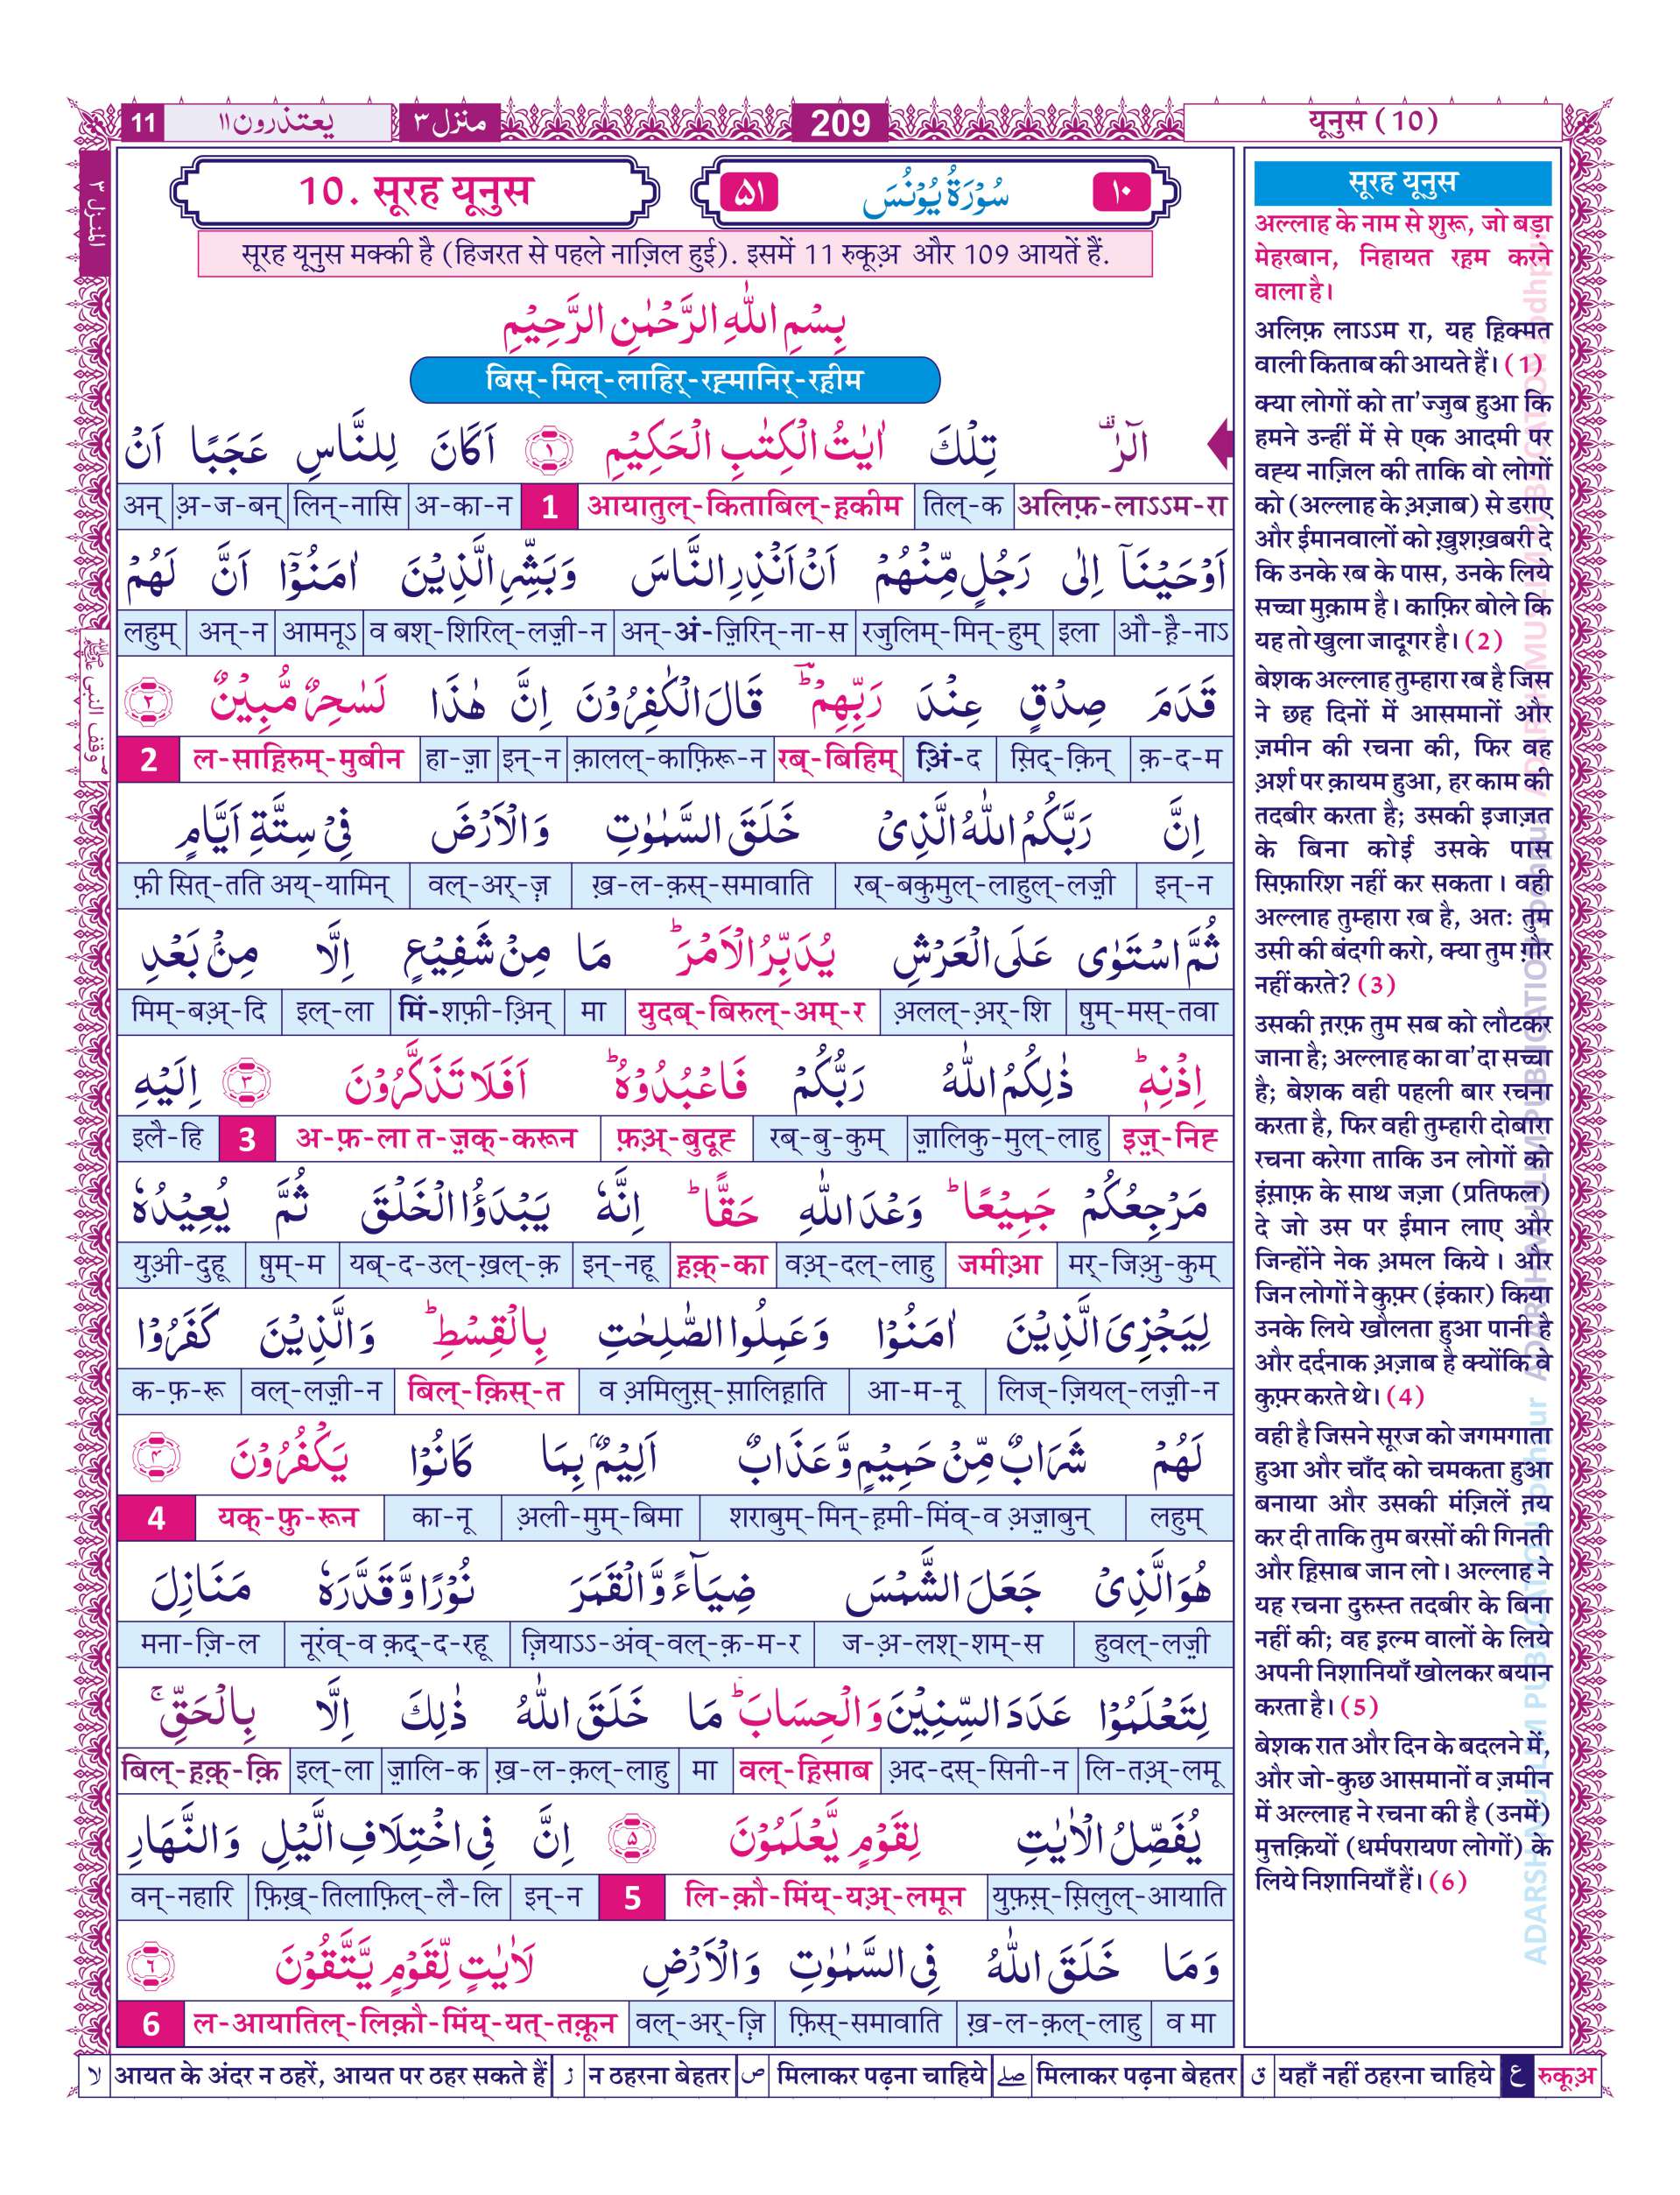 11 یعتذرون۱۱ منزل۳ 209 यूनुस (10)
المنزل ۳
وقف النبی ﷺ
10. सूरह यूनुस
۵۱ سُوْرَةُ يُوْنُسَ ۱۰
सूरह यूनुस मक्की है (हिजरत से पहले नाज़िल हुई). इसमें 11 रुकूअ़ और 109 आयतें हैं.
بِسْمِ اللّٰهِ الرَّحْمٰنِ الرَّحِيْمِ
बिस्-मिल्-लाहिर्-रह़मानिर्-रह़ीम
الٓرٰ ۫ تِلْكَ اٰيٰتُ الْكِتٰبِ الْحَكِيْمِ ۱ اَكَانَ لِلنَّاسِ عَجَبًا اَنْ
अन् अ़-ज-बन् लिन्-नासि अ-का-न 1 आयातुल्-किताबिल्-ह़कीम तिल्-क अलिफ़-लाऽऽम-रा
اَوْحَيْنَاۤ اِلٰى رَجُلٍ مِّنْهُمْ اَنْ اَنْذِرِ النَّاسَ وَبَشِّرِ الَّذِيْنَ اٰمَنُوْۤا اَنَّ لَهُمْ
लहुम् अन्-न आमनूऽ व बश्-शिरिल्-लज़ी-न अन्-अं-ज़िरिन्-ना-स रजुलिम्-मिन्-हुम् इला औ-ह़ै-नाऽ
قَدَمَ صِدْقٍ عِنْدَ رَبِّهِمْ ؕ قَالَ الْكٰفِرُوْنَ اِنَّ هٰذَا لَسٰحِرٌ مُّبِيْنٌ ۲
2 ल-साह़िरुम्-मुबीन हा-ज़ा इन्-न क़ालल्-काफ़िरू-न रब्-बिहिम् अ़िं-द स़िद्-क़िन् क़-द-म
اِنَّ رَبَّكُمُ اللّٰهُ الَّذِىْ خَلَقَ السَّمٰوٰتِ وَالْاَرْضَ فِىْ سِتَّةِ اَيَّامٍ
फ़ी सित्-तति अय्-यामिन् वल्-अर्-ज़ ख़-ल-क़स्-समावाति रब्-बकुमुल्-लाहुल्-लज़ी इन्-न
ثُمَّ اسْتَوٰى عَلَى الْعَرْشِ يُدَبِّرُ الْاَمْرَ ؕ مَا مِنْ شَفِيْعٍ اِلَّا مِنْۢ بَعْدِ
मिम्-बअ़्-दि इल्-ला मिं-शफ़ी-अ़िन् मा युदब्-बिरुल्-अम्-र अ़लल्-अ़र्-शि षुम्-मस्-तवा
اِذْنِهٖ ؕ ذٰلِكُمُ اللّٰهُ رَبُّكُمْ فَاعْبُدُوْهُ ؕ اَفَلَا تَذَكَّرُوْنَ ۳ اِلَيْهِ
इलै-हि 3 अ-फ़-ला त-ज़क्-करून फ़अ़्-बुदूह रब्-बु-कुम् ज़ालिकु-मुल्-लाहु इज़्-निह
مَرْجِعُكُمْ جَمِيْعًا ؕ وَعْدَ اللّٰهِ حَقًّا ؕ اِنَّهٗ يَبْدَؤُا الْخَلْقَ ثُمَّ يُعِيْدُهٗ
युअ़ी-दुहू षुम्-म यब्-द-उल्-ख़ल्-क़ इन्-नहू ह़क़्-का वअ़्-दल्-लाहु जमीआ़ मर्-जिअ़ु-कुम्
لِيَجْزِىَ الَّذِيْنَ اٰمَنُوْا وَعَمِلُوا الصّٰلِحٰتِ بِالْقِسْطِ ؕ وَالَّذِيْنَ كَفَرُوْا
क-फ़-रू वल्-लज़ी-न बिल्-क़िस्-त व अ़मिलुस़्-स़ालिह़ाति आ-म-नू लिज्-ज़ियल्-लज़ी-न
لَهُمْ شَرَابٌ مِّنْ حَمِيْمٍ وَّعَذَابٌ اَلِيْمٌۢ بِمَا كَانُوْا يَكْفُرُوْنَ ۴
4 यक्-फ़ु-रून का-नू अली-मुम्-बिमा शराबुम्-मिन्-ह़मी-मिंव्-व अ़ज़ाबुन् लहुम्
هُوَ الَّذِىْ جَعَلَ الشَّمْسَ ضِيَآءً وَّالْقَمَرَ نُوْرًا وَّقَدَّرَهٗ مَنَازِلَ
मना-ज़ि-ल नूरंव्-व क़द्-द-रहू ज़ियाऽऽ-अंव्-वल्-क़-म-र ज-अ़-लश्-शम्-स हुवल्-लज़ी
لِتَعْلَمُوْا عَدَدَ السِّنِيْنَ وَالْحِسَابَ ؕ مَا خَلَقَ اللّٰهُ ذٰلِكَ اِلَّا بِالْحَقِّ ۚ
बिल्-ह़क़्-क़ि इल्-ला ज़ालि-क ख़-ल-क़ल्-लाहु मा वल्-ह़िसाब अ़द-दस्-सिनी-न लि-तअ़्-लमू
يُفَصِّلُ الْاٰيٰتِ لِقَوْمٍ يَّعْلَمُوْنَ ۵ اِنَّ فِى اخْتِلَافِ الَّيْلِ وَالنَّهَارِ
वन्-नहारि फ़िख़्-तिलाफ़िल्-लै-लि इन्-न 5 लि-क़ौ-मिंय्-यअ़्-लमून युफ़स़्-स़िलुल्-आयाति
وَمَا خَلَقَ اللّٰهُ فِى السَّمٰوٰتِ وَالْاَرْضِ لَاٰيٰتٍ لِّقَوْمٍ يَّتَّقُوْنَ ۶
6 ल-आयातिल्-लिक़ौ-मिंय्-यत्-तक़ून वल्-अर्-ज़ि फ़िस्-समावाति ख़-ल-क़ल्-लाहु व मा
सूरह यूनुस
अल्लाह के नाम से शुरू, जो बड़ा
मेहरबान, निहायत रह़म करने
वाला है।
अलिफ़ लाऽऽम रा, यह ह़िक्मत
वाली किताब की आयते हैं। (1)
क्या लोगों को ता'ज्जुब हुआ कि
हमने उन्हीं में से एक आदमी पर
वह़्य नाज़िल की ताकि वो लोगों
को (अल्लाह के अ़ज़ाब) से डराए
और ईमानवालों को ख़ुशख़बरी दे
कि उनके रब के पास, उनके लिये
सच्चा मुक़ाम है। काफ़िर बोले कि
यह तो खुला जादूगर है। (2)
बेशक अल्लाह तुम्हारा रब है जिस
ने छह दिनों में आसमानों और
ज़मीन की रचना की, फिर वह
अ़र्श पर क़ायम हुआ, हर काम की
तदबीर करता है; उसकी इजाज़त
के बिना कोई उसके पास
सिफ़ारिश नहीं कर सकता । वही
अल्लाह तुम्हारा रब है, अतः तुम
उसी की बंदगी करो, क्या तुम ग़ौर
नहीं करते? (3)
उसकी त़रफ़ तुम सब को लौटकर
जाना है; अल्लाह का वा'दा सच्चा
है; बेशक वही पहली बार रचना
करता है, फिर वही तुम्हारी दोबारा
रचना करेगा ताकि उन लोगों को
इंस़ाफ़ के साथ जज़ा (प्रतिफल)
दे जो उस पर ईमान लाए और
जिन्होंने नेक अ़मल किये । और
जिन लोगों ने कुफ़्र (इंकार) किया
उनके लिये खौलता हुआ पानी है
और दर्दनाक अ़ज़ाब है क्योंकि वे
कुफ़्र करते थे। (4)
वही है जिसने सूरज को जगमगाता
हुआ और चाँद को चमकता हुआ
बनाया और उसकी मंज़िलें त़य
कर दी ताकि तुम बरसों की गिनती
और ह़िसाब जान लो। अल्लाह ने
यह रचना दुरुस्त तदबीर के बिना
नहीं की; वह इल्म वालों के लिये
अपनी निशानियाँ खोलकर बयान
करता है। (5)
बेशक रात और दिन के बदलने में,
और जो-कुछ आसमानों व ज़मीन
में अल्लाह ने रचना की है (उनमें)
मुत्तक़ियों (धर्मपरायण लोगों) के
लिये निशानियाँ हैं। (6)
ADARSH MUSLIM PUBLICATION Jodhpur ADARSH MUSLIM PUBLICATION Jodhpur ADARSH MUSLIM PUBLICATION Jodhpur
لا आयत के अंदर न ठहरें, आयत पर ठहर सकते हैं ز न ठहरना बेहतर ص मिलाकर पढ़ना चाहिये صلے मिलाकर पढ़ना बेहतर ق यहाँ नहीं ठहरना चाहिये ع रुकूअ़